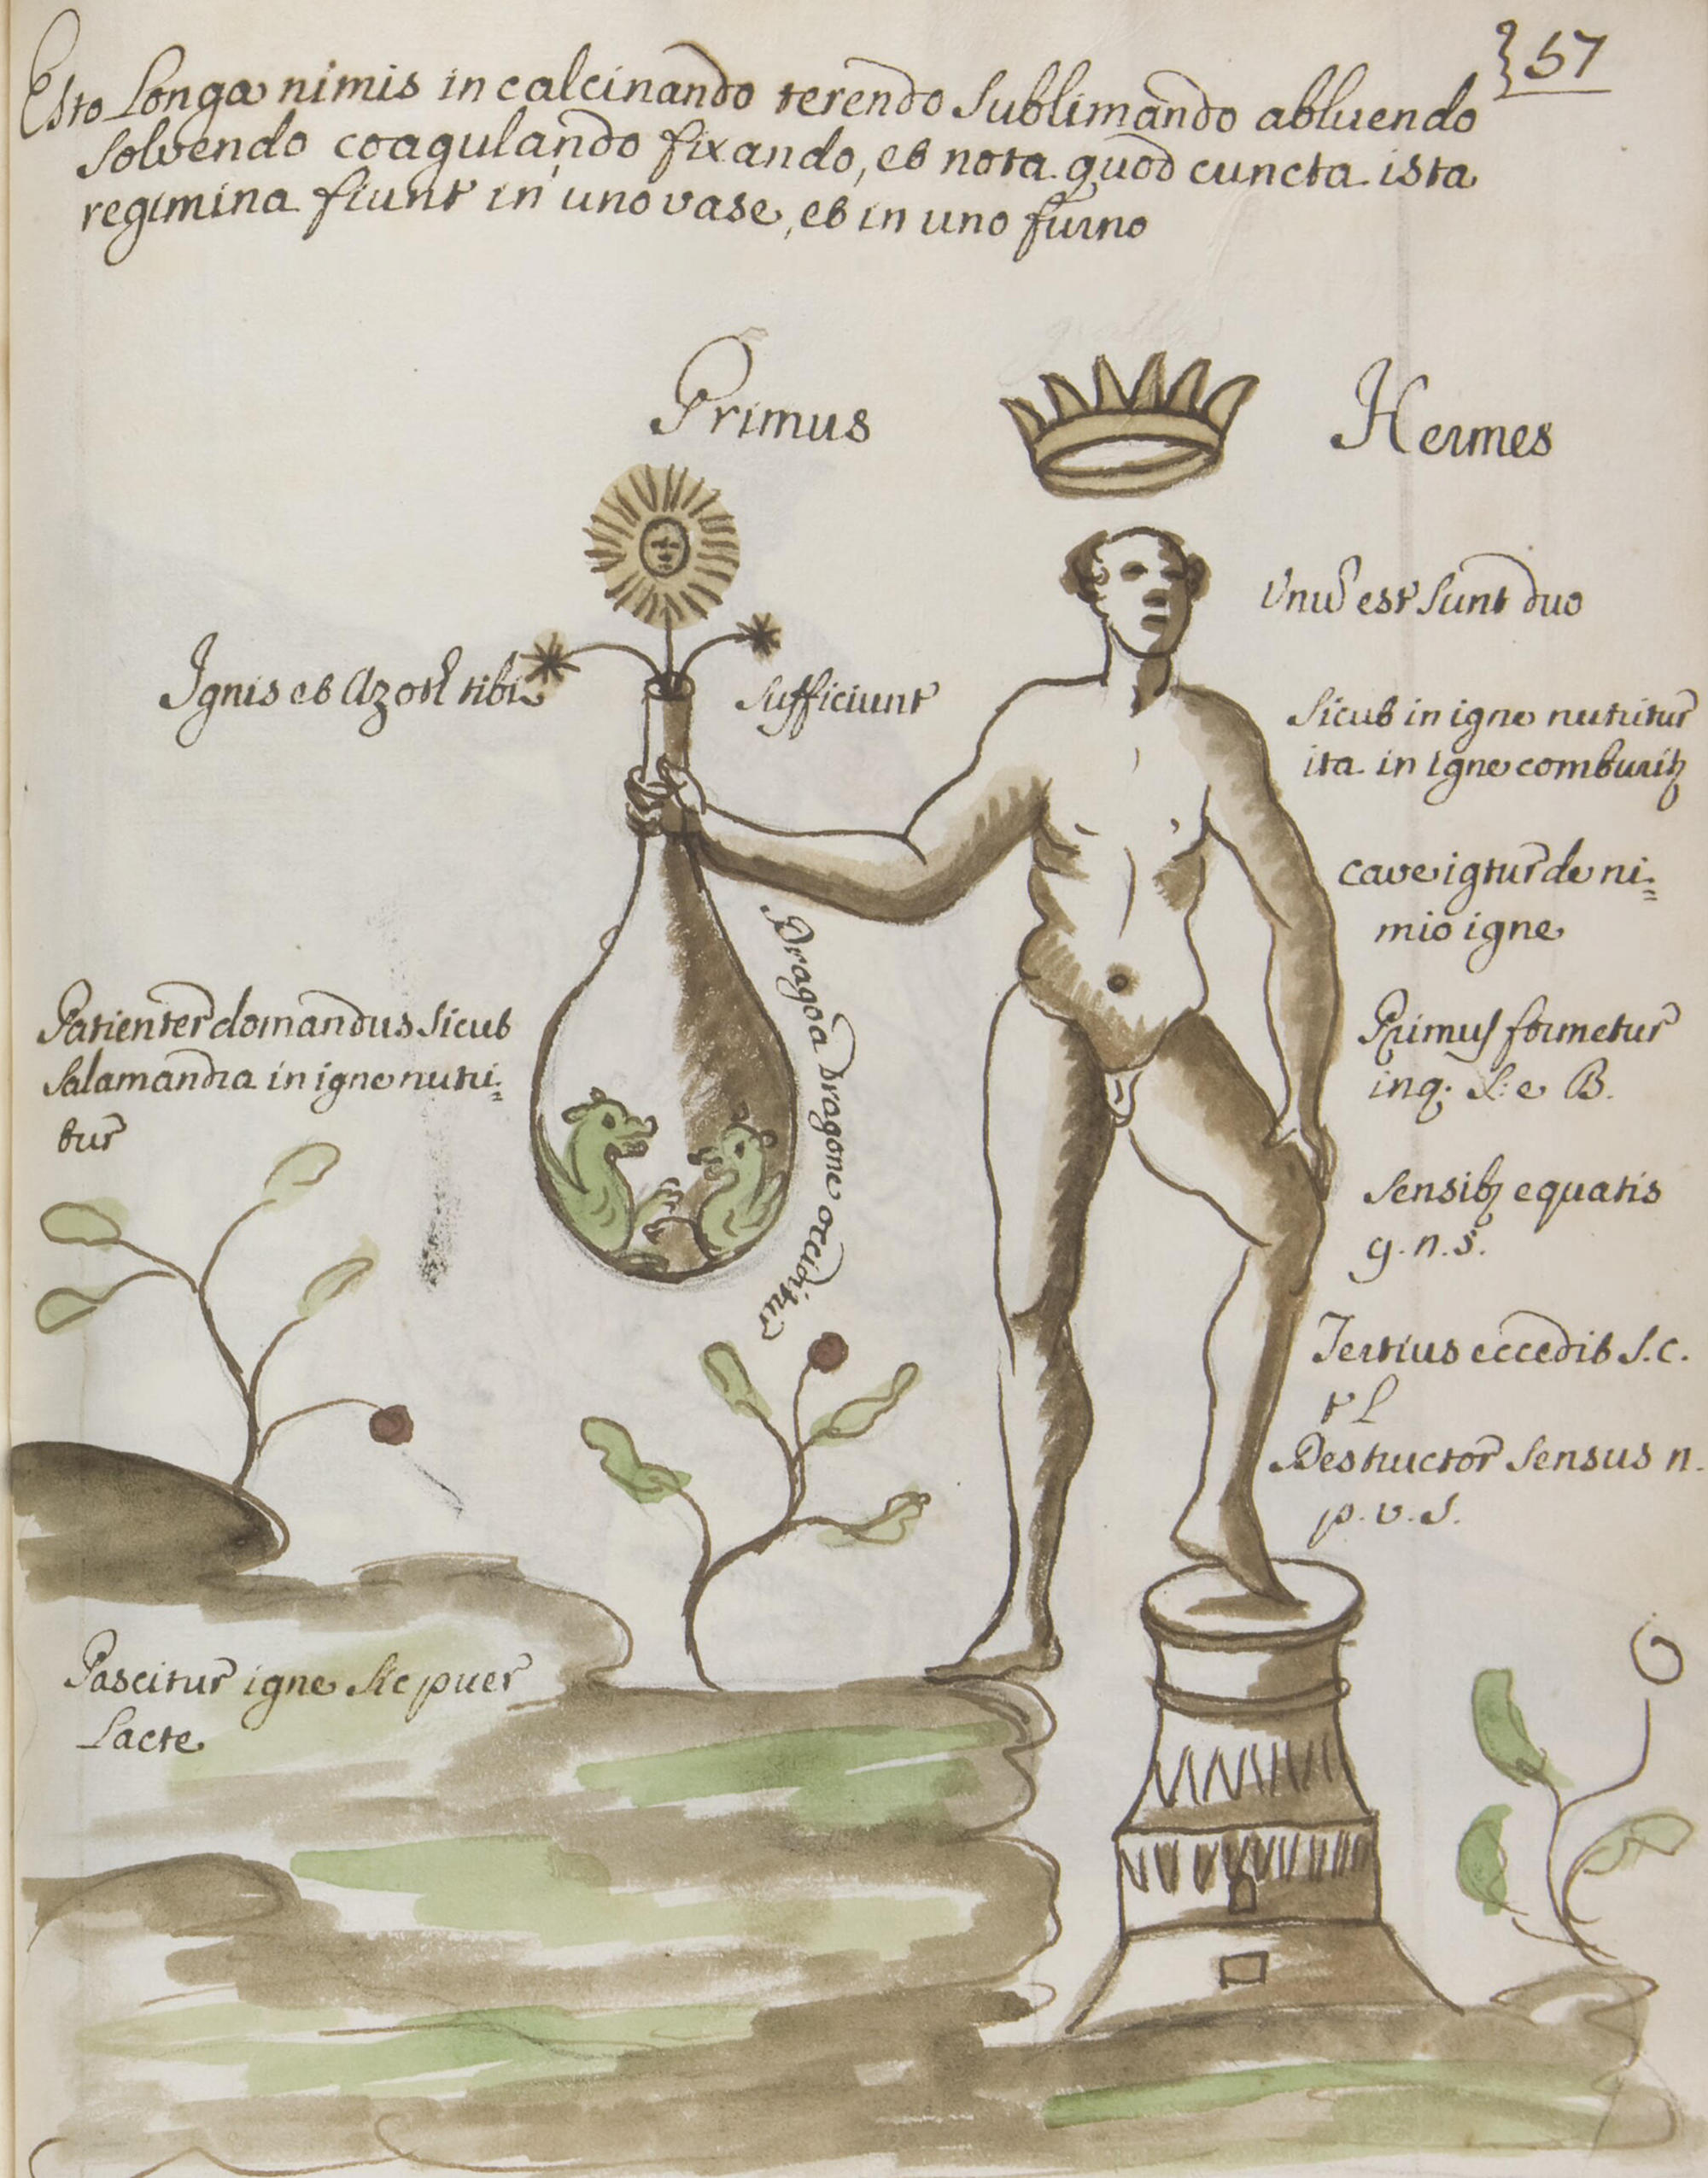 57
Esto Longa nimis in calcinando terendo sublimando abluendo
solvendo coagulando fixando, et nota quod cuncta ista
regimina fiunt in uno vase, et in uno furno
Primus
Hermes
Unus est sunt duo
Ignis et Azoth tibi
sufficiunt
Sicut in igne nutritur
ita in igne comburitz
cave igtur de ni=
mio igne
Dragoa Dragone occiditur
Patienter domandus sicut
salamandra in igne nutri=
tur
Primus formetur
inq. L: e B.
Sensibz equatis
g. n. s.
Tertius eccedit s. c.
t L
Destructor sensus n.
p. v. s.
Pascitur igne sic puer
Lacte